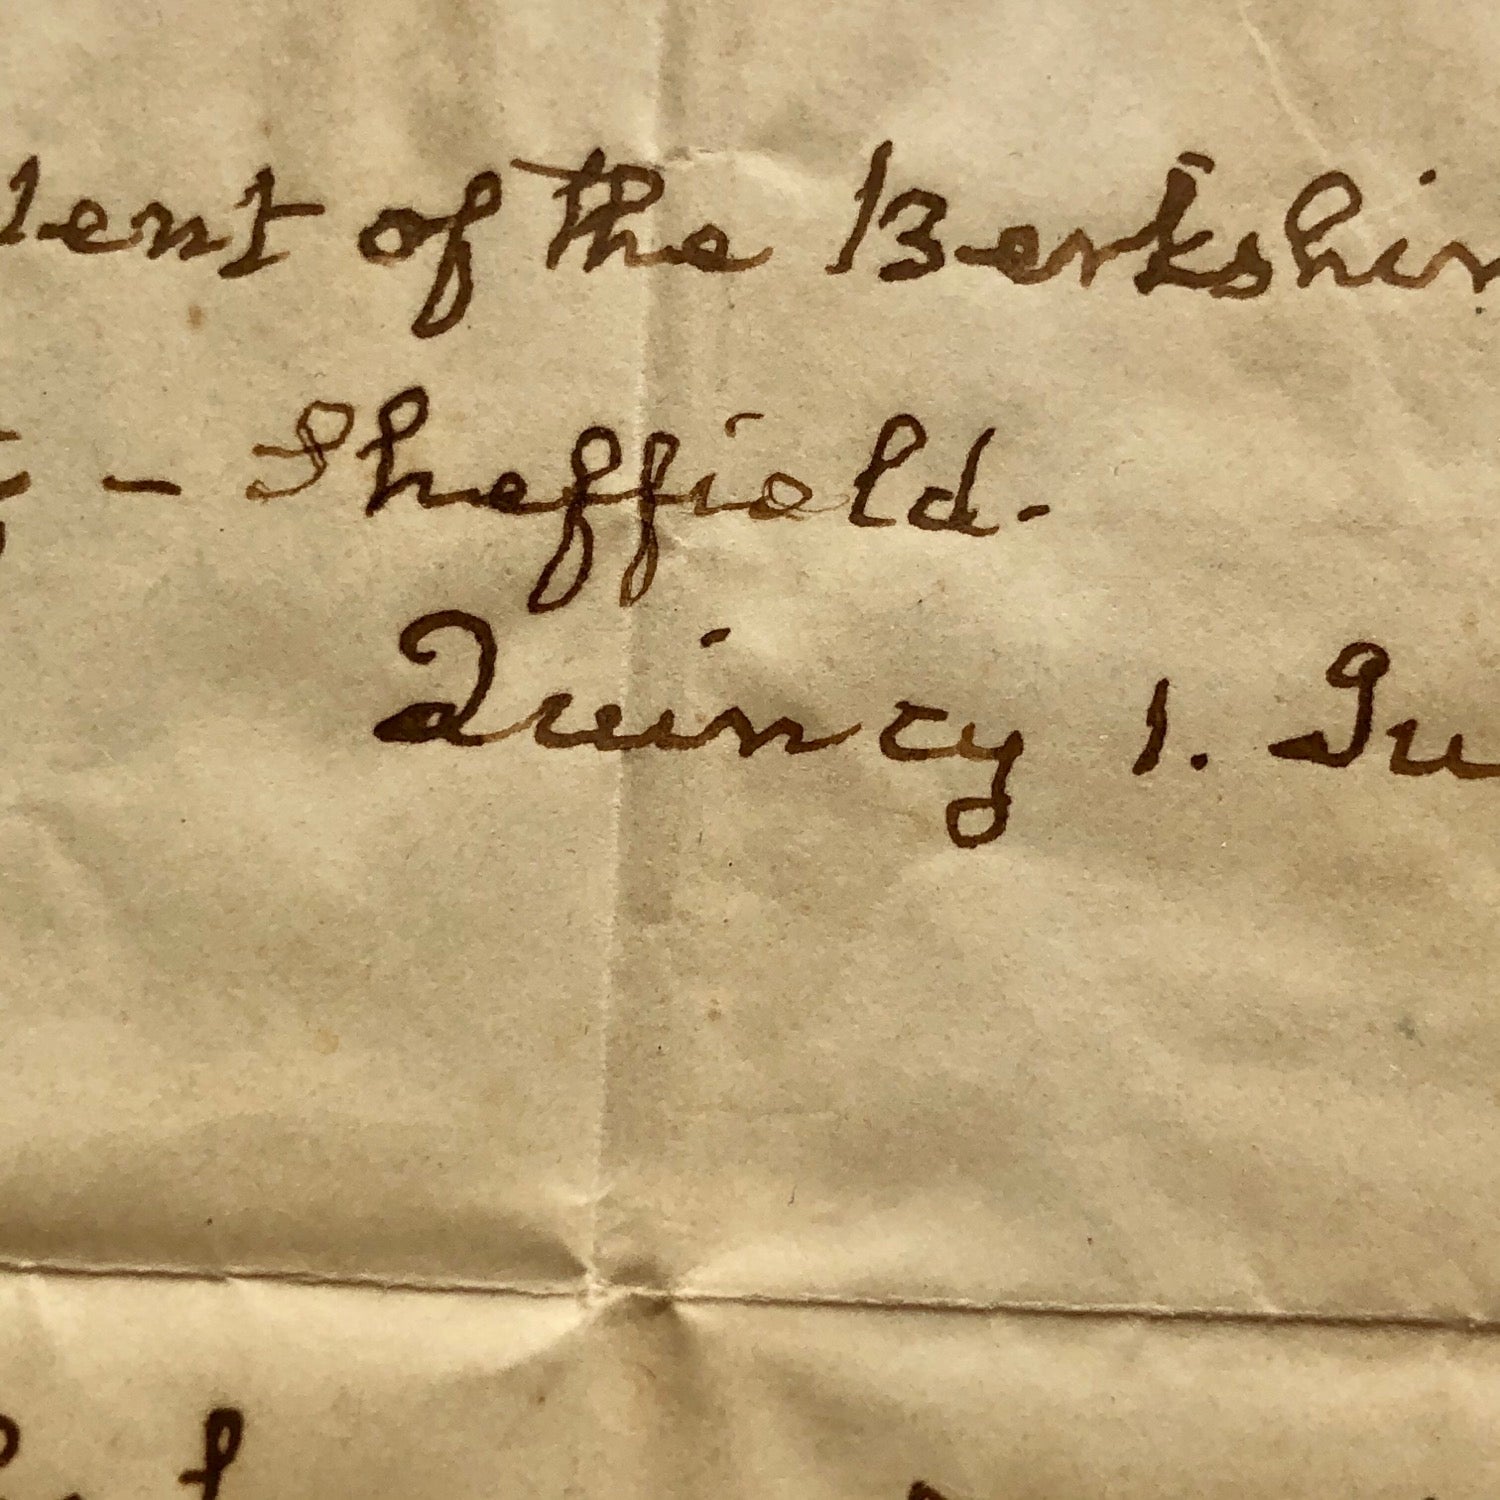 dent of the Berkshir
– Sheffield.
Quincy 1. Ju